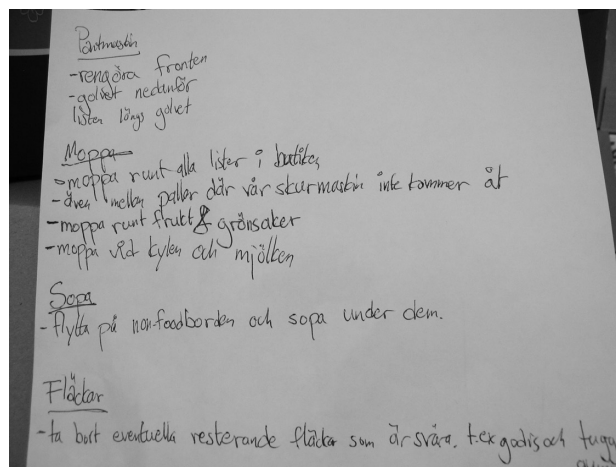 Pantmaskin
-rengöra fronten
-golvet nedanför
listen längs golvet
Moppa
-moppa runt alla lister i butiken
-även mellan pallar där vår skurmaskin inte kommer åt
-moppa runt frukt & grönsaker
-moppa vid kylen och mjölken
Sopa
-flytta på nonfoodborden och sopa under dem.
Fläckar
-ta bort eventuella resterande fläckar som är svåra. t.ex godis och